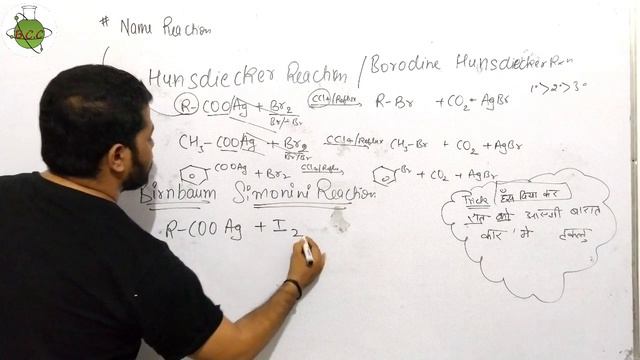 B.C.C
# Name Reaction
Hunsdiecker Reaction / Borodine Hunsdiecker Rxn
R-COOAg + Br₂ CCl₄/Reflux R-Br + CO₂ + AgBr 1°>2°>3°
Br/+Br
CH₃-COOAg + Br₂ CCl₄/Reflux CH₃-Br + CO₂ + AgBr
Br/Br
COOAg + Br₂ CCl₄/Reflux Br + CO₂ + AgBr
Birnbaum Simonini Reaction
R-COOAg + I₂
Trick दिया कर
रात को बारात
कार में